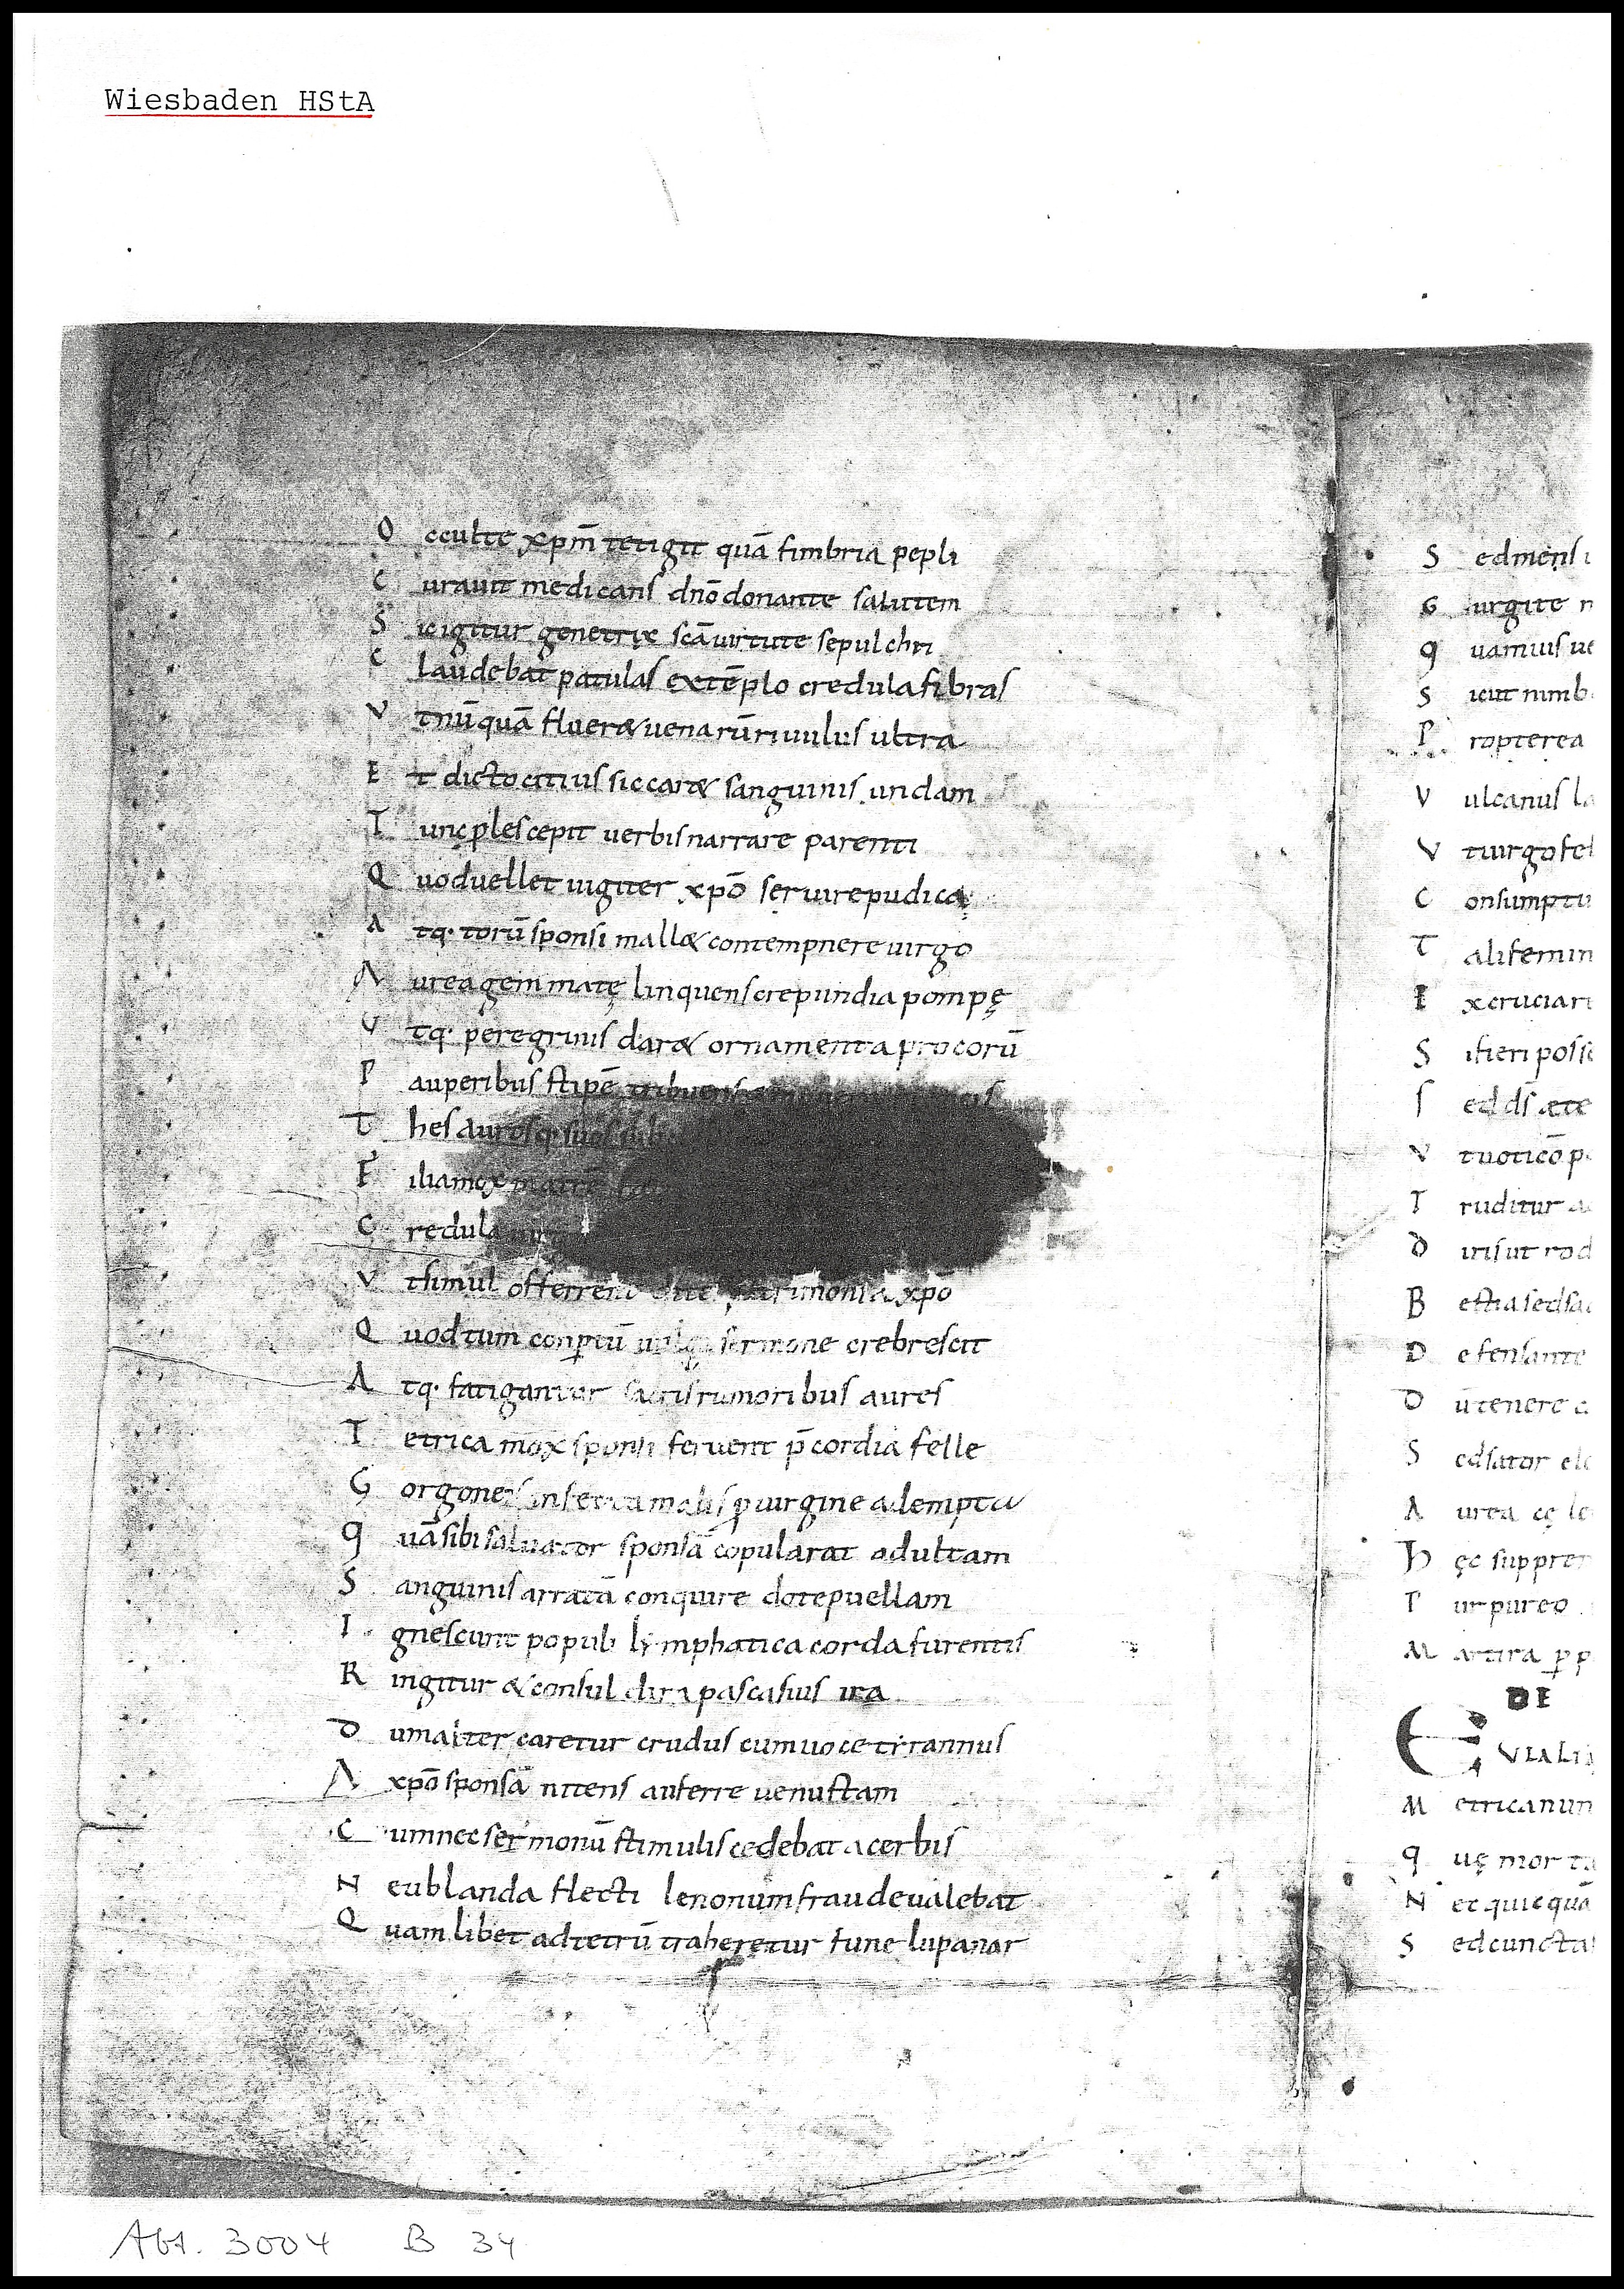 Wiesbaden HStA
O cculte xpm̄ tetigit quā fimbria pepli
C urauit medicans dn̄o donante salutem
S ic igitur genetrix scā uirtute sepulchri
C laudebat patulas extēplo credula fibras
V t nū quā fluer& uena rū riuulus ultra
E t dicto citius siccar& sanguinis undam
T unc ꝓles cepit uerbis narrare parenti
Q uod uellet iugiter xpō seruire pudica
A tq· torū sponsi mall& contempnere uirgo
A urea gemmatę linquens crepundia pompę
V tq· peregrinis dar& ornamenta procorū
P auperibus stipē tribuens
T hesaurosq· suos
F ilia mox matrē
C redula
V t simul offerrent xpō
Q uod tum conꝑtū sermone crebrescit
A tq· fatigantur rumoribus aures
T etrica mox sponsi feruent p̄cordia felle
G orgoneis infecta malis ꝓ uirgine adempta
q uā sibi saluator sponsā copularat adultam
S anguinis arratā conquire dote puellam
I gnescunt populi limphatica corda furentis
R ingitur & consul dira pascasius ira
D um aliter caretur crudus cum uoce tirannus
A xpō sponsā nitens auferre uenustam
C um nec sermonū stimulis cedebat acerbis
N eu blanda flecti lenonum fraude ualebat
Q uam libet ad tetrū traheretur fune lupanar
S ed mens
G urgite
q uamuis
S icut nimb
P ropterea
V ulcanus
V t uirgo
C onsumptu
T ali femin
E xcruciari
S i fieri posse
S ed ds̄
V t uoti cō
T ruditur
D iris ut rod
B estia sed
D efensante
D ū tenere
S ed sator
A urea
H ęc suppre
P urpureo
M artira ꝑ
DE
E VLALI
M etrica nun
q uę mor
N ec quicquā
S ed cuncta
Abt. 3004 B 34